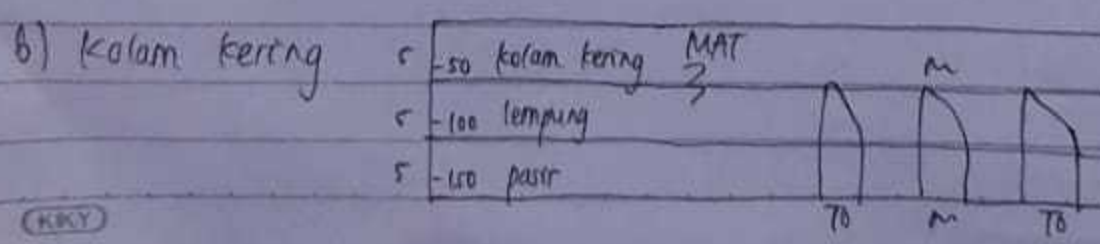 b) Kolam kering 5 -50 kolam kering MAT
5 -100 lempung
5 -150 pasir
KKY